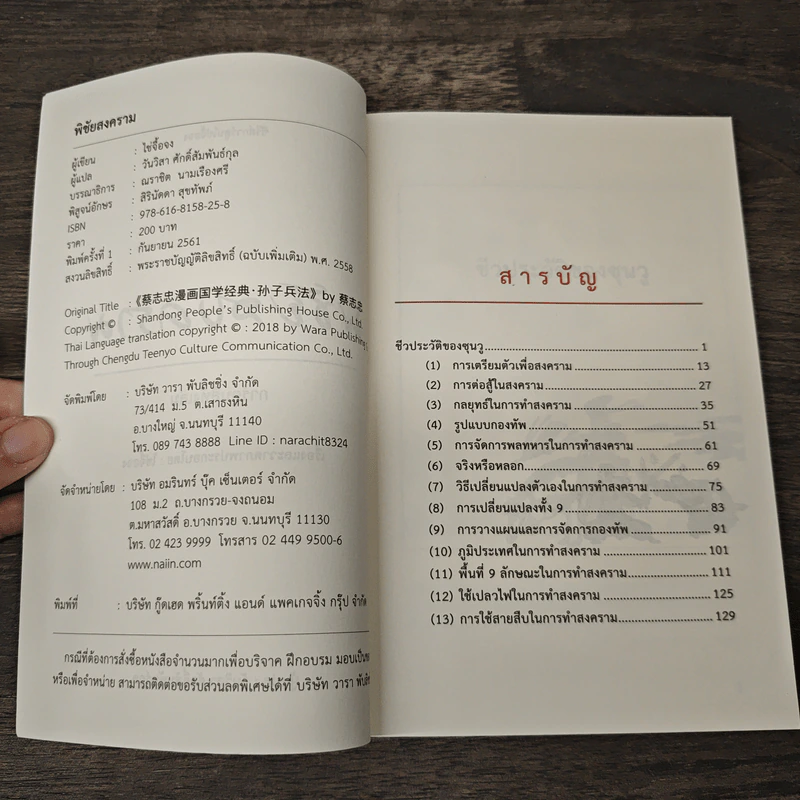 พิชัยสงคราม
ผู้เขียน : ไช่จื้อจง
ผู้แปล : วันวิสา ศักดิ์สัมพันธ์กุล
บรรณาธิการ : ณราชิต นามเรืองศรี
พิสูจน์อักษร : สิรินัดดา สุขทัพภ์
ISBN : 978-616-8158-25-8
ราคา : 200 บาท
พิมพ์ครั้งที่ 1 : กันยายน 2561
สงวนลิขสิทธิ์ : พระราชบัญญัติลิขสิทธิ์ (ฉบับเพิ่มเติม) พ.ศ. 2558
Original Title : 《蔡志忠漫画国学经典·孙子兵法》by 蔡志忠
Copyright © : Shandong People's Publishing House Co., Ltd.
Thai Language translation copyright © : 2018 by Wara Publishing
Through Chengdu Teenyo Culture Communication Co., Ltd.
จัดพิมพ์โดย : บริษัท วารา พับลิชชิ่ง จำกัด
73/414 ม.5 ต.เสาธงหิน
อ.บางใหญ่ จ.นนทบุรี 11140
โทร. 089 743 8888 Line ID : narachit8324
จัดจำหน่ายโดย : บริษัท อมรินทร์ บุ๊ค เซ็นเตอร์ จำกัด
108 ม.2 ถ.บางกรวย-จงถนอม
ต.มหาสวัสดิ์ อ.บางกรวย จ.นนทบุรี 11130
โทร. 02 423 9999 โทรสาร 02 449 9500-6
www.naiin.com
พิมพ์ที่ : บริษัท กู๊ดเฮด พริ้นท์ติ้ง แอนด์ แพคเกจจิ้ง กรุ๊ป จำกัด
กรณีที่ต้องการสั่งซื้อหนังสือจำนวนมากเพื่อบริจาค ฝึกอบรม มอบเป็น
หรือเพื่อจำหน่าย สามารถติดต่อขอรับส่วนลดพิเศษได้ที่ บริษัท วารา
สารบัญ
ชีวประวัติของซุนวู 1
(1) การเตรียมตัวเพื่อสงคราม 13
(2) การต่อสู้ในสงคราม 27
(3) กลยุทธ์ในการทำสงคราม 35
(4) รูปแบบกองทัพ 51
(5) การจัดการพลทหารในการทำสงคราม 61
(6) จริงหรือหลอก 69
(7) วิธีเปลี่ยนแปลงตัวเองในการทำสงคราม 75
(8) การเปลี่ยนแปลงทั้ง 9 83
(9) การวางแผนและการจัดการกองทัพ 91
(10) ภูมิประเทศในการทำสงคราม 101
(11) พื้นที่ 9 ลักษณะในการทำสงคราม 111
(12) ใช้เปลวไฟในการทำสงคราม 125
(13) การใช้สายสืบในการทำสงคราม 129